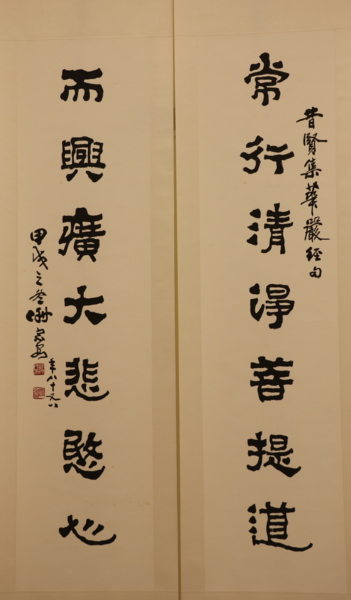 昔賢集華嚴經句
常行清淨菩提道
而興廣大悲愍心
甲戌之冬謝宗安
年八十又八